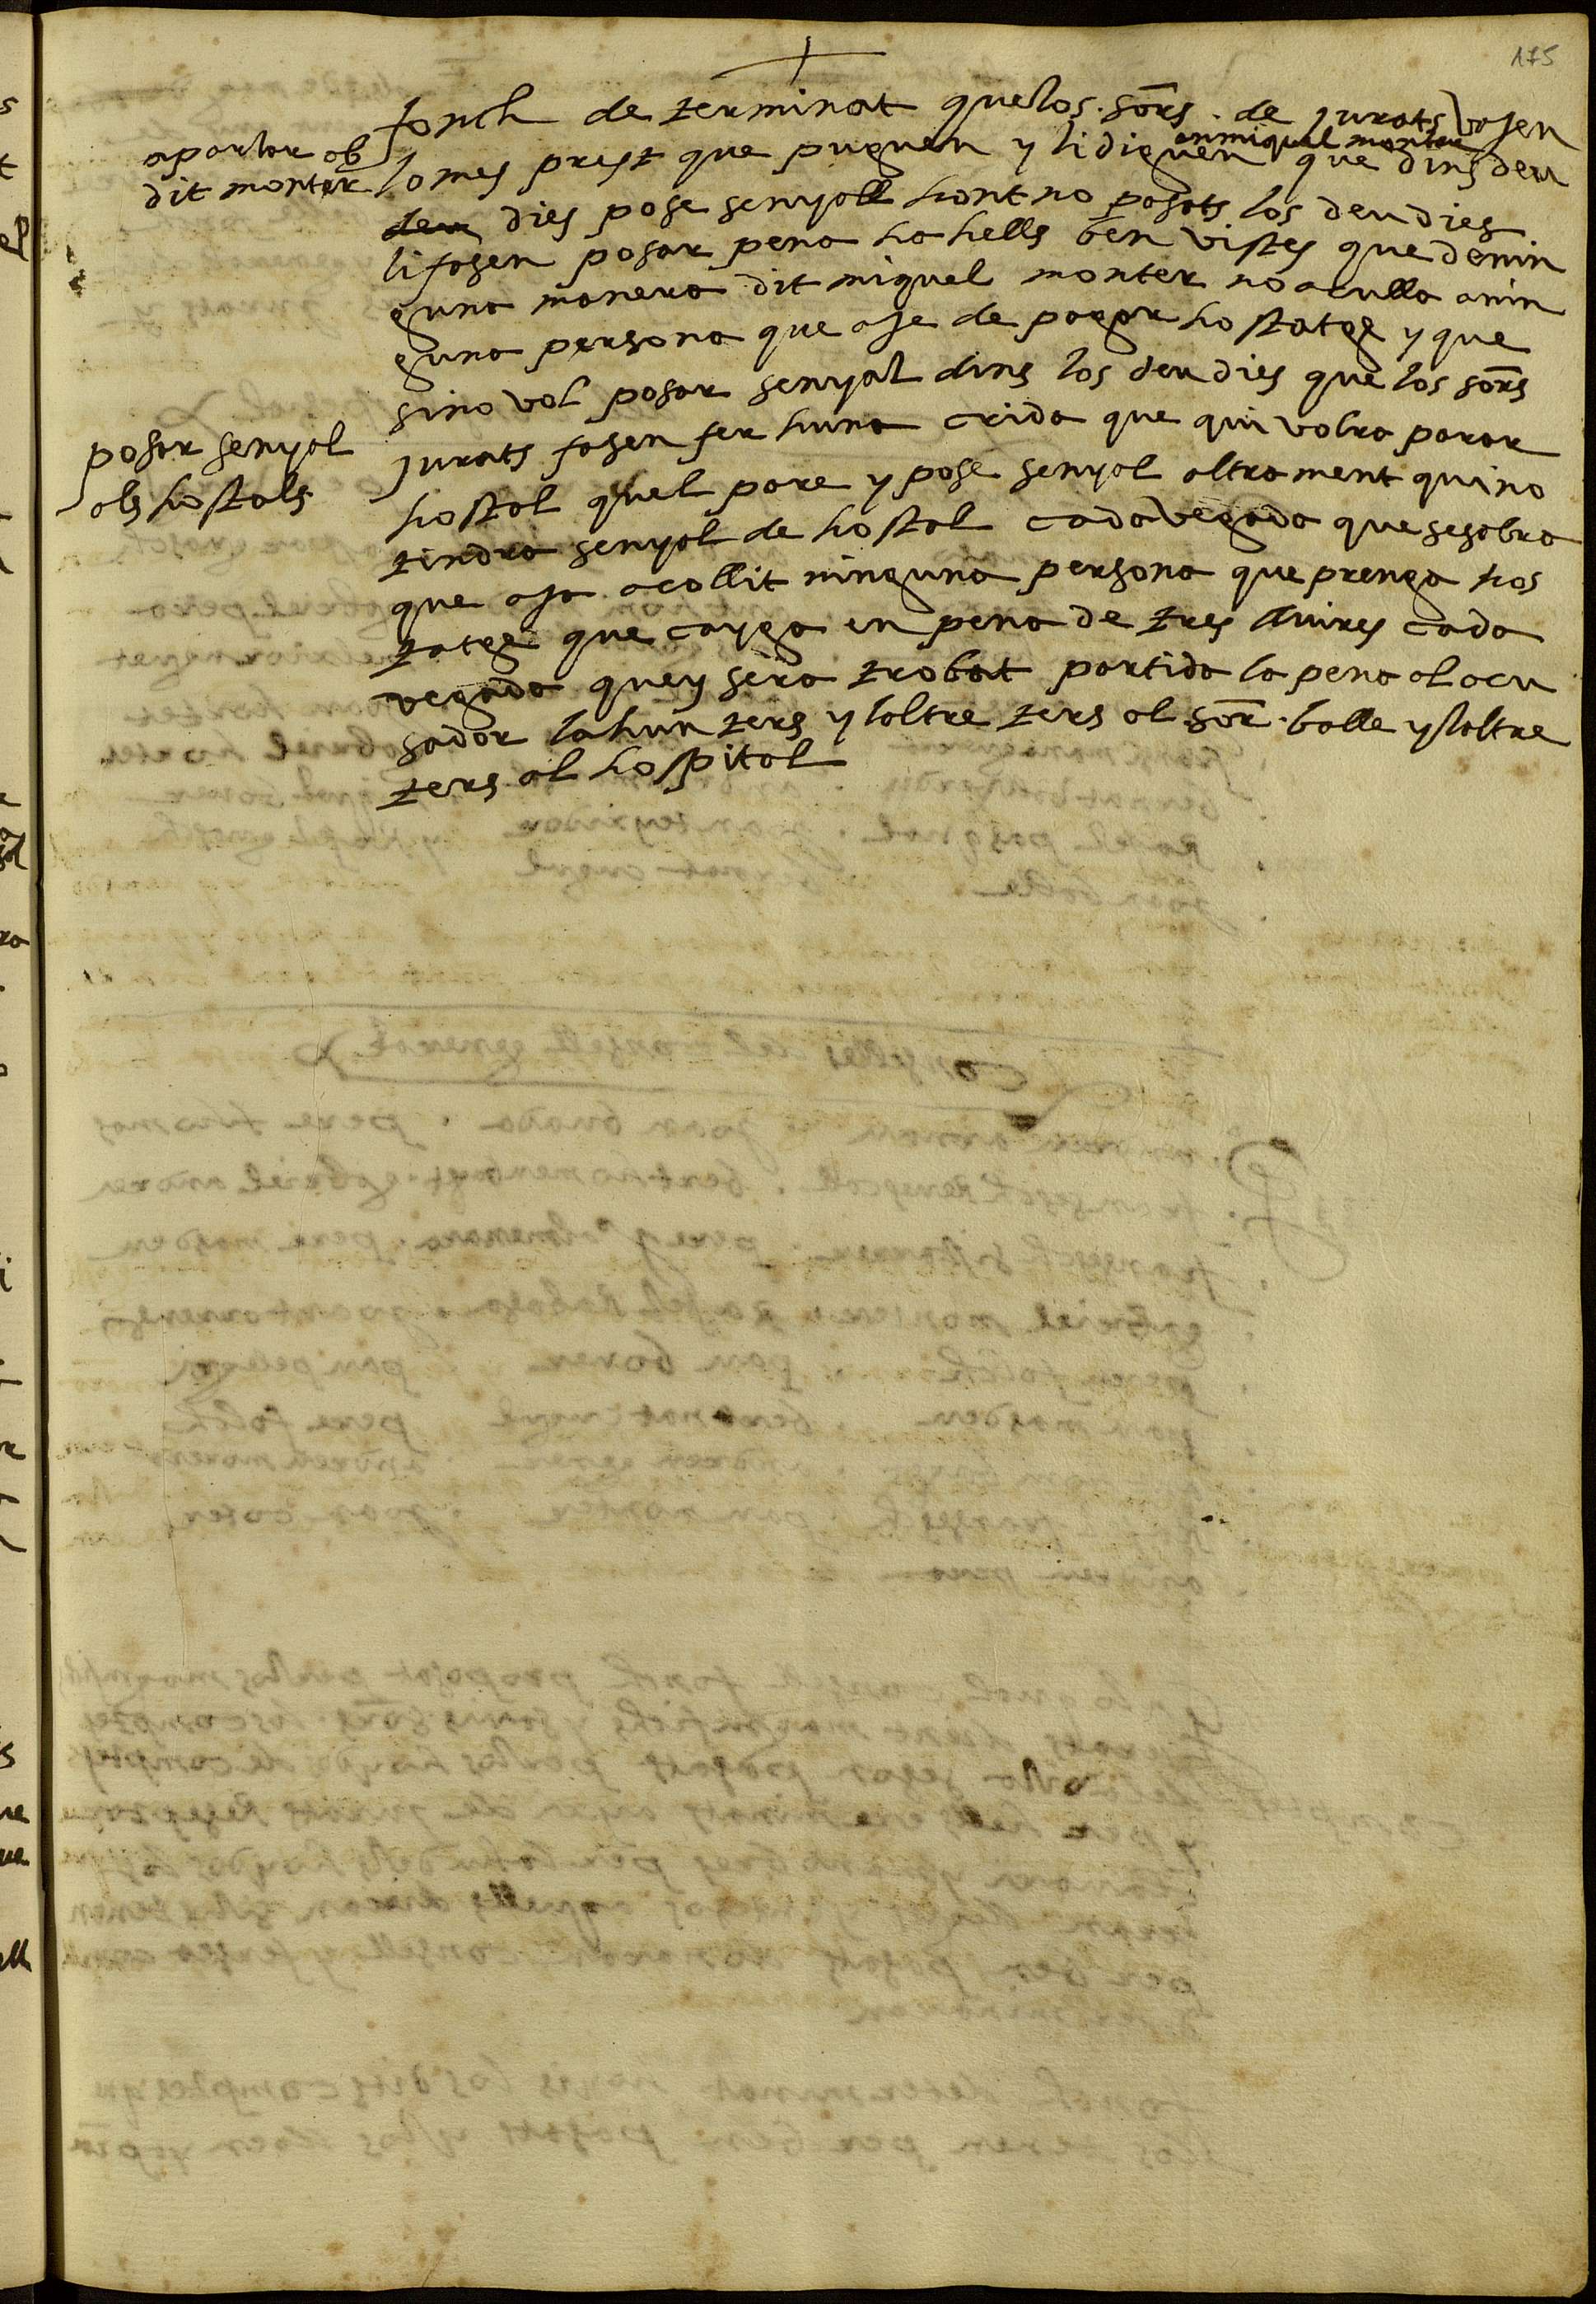 175
fonch de terminat quelos sors. de jurats vagen
a parlar ab
dit monter
an miquel monter
lo mes prest que puguen y li diguen que dins deu
deu dies pose senyall hont no posats los deu dies
li fasen posar pena ha hells ben vistes que de nin
guna manera dit miquel monter no aculla a nin
guna persona que aje de pagar hostatge y que
si no vol posar senyal dins los deu dies que los sors
posar senyal
als hostals
jurats fasen fer huna crida que qui volra parar
hostal quel pare y pose senyal altrament qui no
tindra senyal de hostal cada vegada que se sabra
que aja acollit ninguna persona que prenga hos
tatge que cayga en pena de tres lliures cada
vegada quey sera trobat partida la pena al acu
sador la hun ters y laltre ters al sor. balle y laltre
ters al hospital